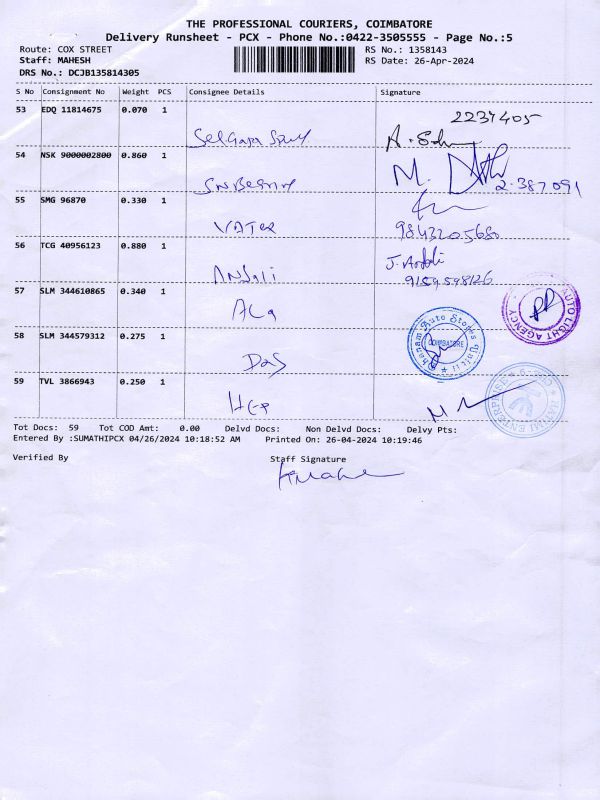 THE PROFESSIONAL COURIERS, COIMBATORE
Delivery Runsheet - PCX - Phone No.:0422-3505555 - Page No.:5
Route: COX STREET
RS No.: 1358143
Staff: MAHESH
RS Date: 26-Apr-2024
DRS No.: DCJB135814305
S No Consignment No Weight PCS Consignee Details Signature
53 EDQ 11814675 0.070 1
2237405
54 NSK 9000002800 0.860 1
2-387091
55 SMG 96870 0.330 1
VATER
9843205680
56 TCG 40956123 0.880 1
ANJali
9159598126
57 SLM 344610865 0.340 1
58 SLM 344579312 0.275 1
Das
59 TVL 3866943 0.250 1
AUTO LIGHT AGENCY
Auto Stores
COIMBATORE
ENTERPRISE
Tot Docs: 59 Tot COD Amt: 0.00 Delvd Docs: Non Delvd Docs: Delvy Pts:
Entered By :SUMATHIPCX 04/26/2024 10:18:52 AM Printed On: 26-04-2024 10:19:46
Verified By
Staff Signature